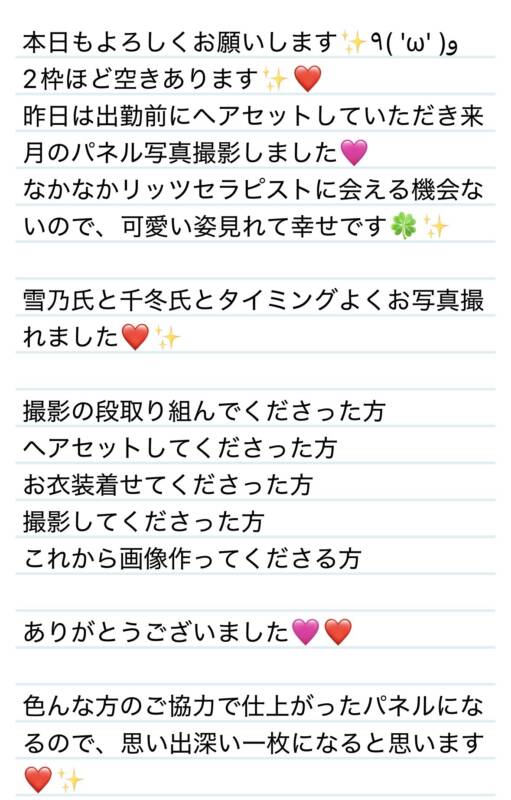 本日もよろしくお願いします✨٩( 'ω' )و
2枠ほど空きあります✨❤️
昨日は出勤前にヘアセットしていただき来
月のパネル写真撮影しました💜
なかなかリッツセラピストに会える機会な
いので、可愛い姿見れて幸せです🍀✨

雪乃氏と千冬氏とタイミングよくお写真撮
れました❤️✨

撮影の段取り組んでくださった方
ヘアセットしてくださった方
お衣装着せてくださった方
撮影してくださった方
これから画像作ってくださる方

ありがとうございました💜❤️

色んな方のご協力で仕上がったパネルにな
るので、思い出深い一枚になると思います
❤️✨